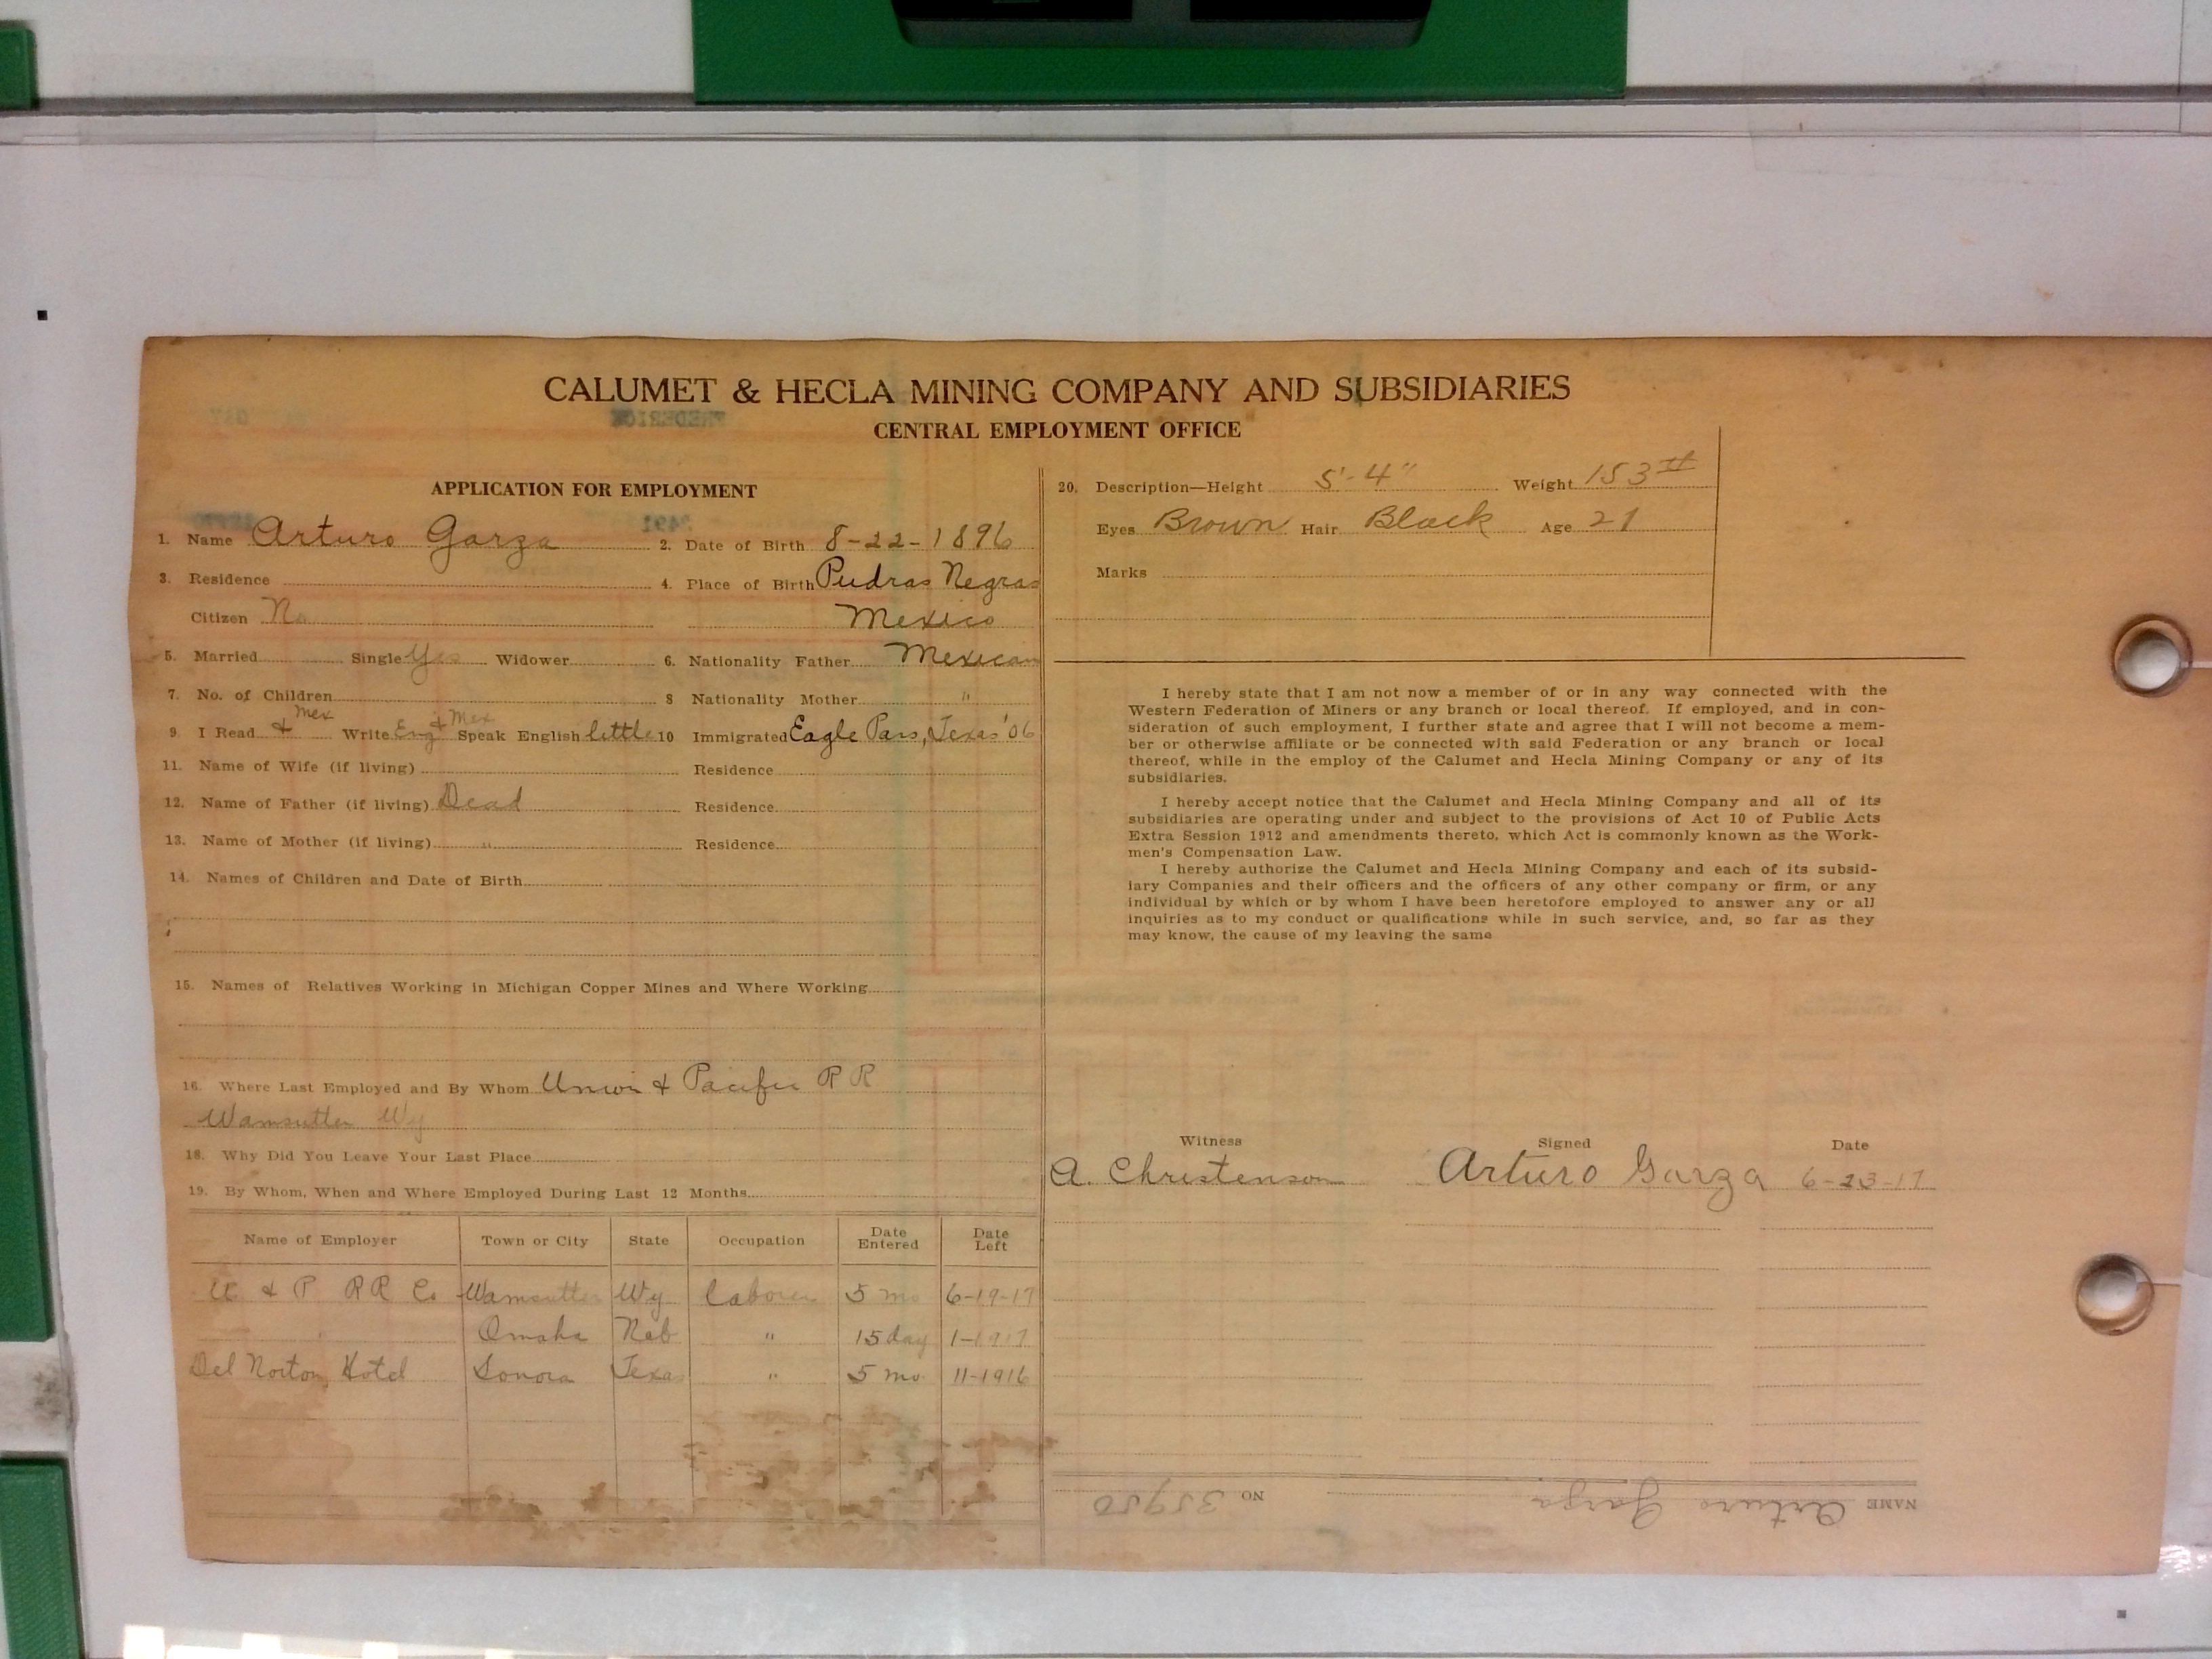 CALUMET & HECLA MINING COMPANY AND SUBSIDIARIES
CENTRAL EMPLOYMENT OFFICE
APPLICATION FOR EMPLOYMENT
1. Name Arturo Garza 2. Date of Birth 8-22-1896
3. Residence 4. Place of Birth Piedras Negras
Citizen No Mexico
5. Married Single Yes Widower 6. Nationality Father Mexican
7. No. of Children 8 Nationality Mother "
9. I Read & Mex Write Eng & Mex Speak English little 10 Immigrated Eagle Pass, Texas '06
11. Name of Wife (if living) Residence
12. Name of Father (if living) Dead Residence
13. Name of Mother (if living) " Residence
14. Names of Children and Date of Birth
15. Names of Relatives Working in Michigan Copper Mines and Where Working
16. Where Last Employed and By Whom Union & Pacific R R
Wamsutter Wy
18. Why Did You Leave Your Last Place
19. By Whom, When and Where Employed During Last 12 Months
Name of Employer Town or City State Occupation Date Entered Date Left
U & P RR Co Wamsutter Wy Laborer 5 mo 6-19-17
Omaha Neb " 15 day 1-1917
Del Norton Hotel Sonora Texas " 5 mo 11-1916
20. Description—Height 5'-4" Weight 153#
Eyes Brown Hair Black Age 21
Marks
I hereby state that I am not now a member of or in any way connected with the
Western Federation of Miners or any branch or local thereof. If employed, and in con-
sideration of such employment, I further state and agree that I will not become a mem-
ber or otherwise affiliate or be connected with said Federation or any branch or local
thereof, while in the employ of the Calumet and Hecla Mining Company or any of its
subsidiaries.
I hereby accept notice that the Calumet and Hecla Mining Company and all of its
subsidiaries are operating under and subject to the provisions of Act 10 of Public Acts
Extra Session 1912 and amendments thereto, which Act is commonly known as the Work-
men's Compensation Law.
I hereby authorize the Calumet and Hecla Mining Company and each of its subsid-
iary Companies and their officers and the officers of any other company or firm, or any
individual by which or by whom I have been heretofore employed to answer any or all
inquiries as to my conduct or qualifications while in such service, and, so far as they
may know, the cause of my leaving the same
Witness Signed Date
A. Christenson Arturo Garza 6-23-17
NAME Arturo Garza NO 35950